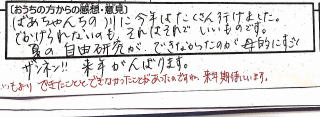 【おうちの方からの感想・意見】
ばあちゃんちの川に今年はたくさん行けました。
でかけられないのも、それはそれで いいものです。
夏の自由研究が、できなかったのが母的にすごく
ザンネン!! 来年がんばります。
いつもより できたことと できなかったことがあったのですね。来年期待しています。